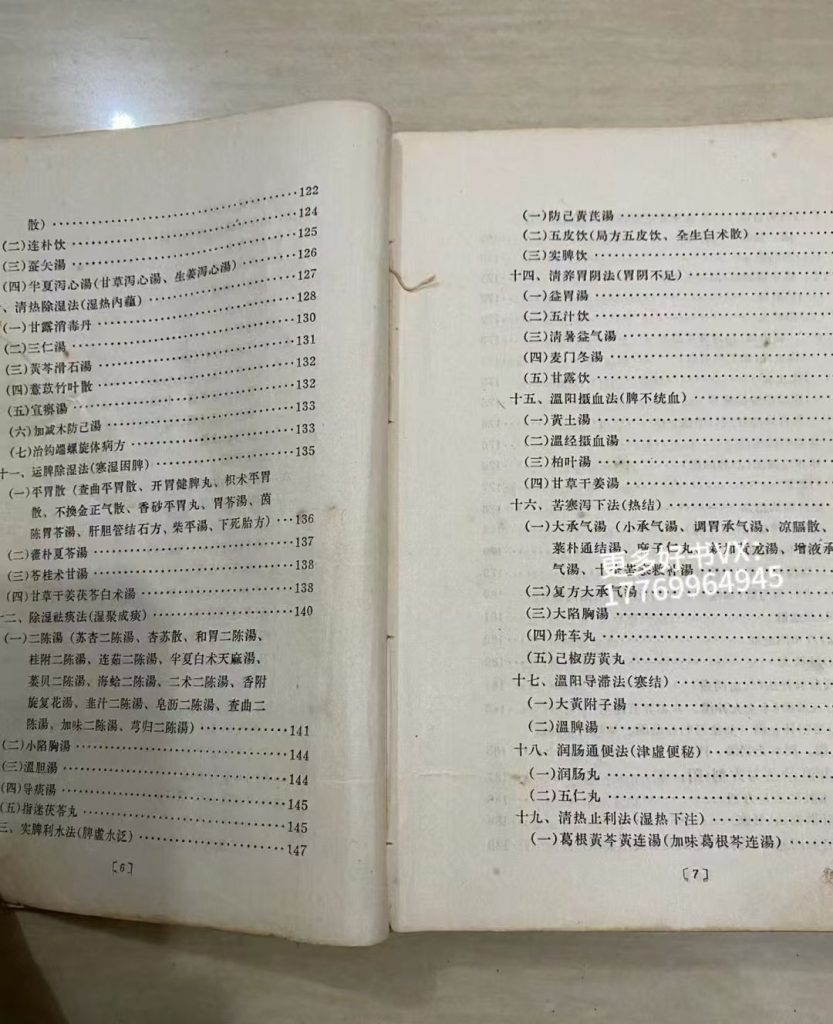 散)··········122
(二)连朴饮··········124
(三)蚕矢湯··········125
(四)半夏泻心湯(甘草泻心湯、生姜泻心湯)··········126
、清热除湿法(湿热内蕴)··········127
(一)甘露消毒丹··········128
(二)三仁湯··········130
(三)黄芩滑石湯··········131
(四)薏苡竹叶散··········132
(五)宣痹湯··········132
(六)加减木防己湯··········133
(七)治钩端螺旋体病方··········133
十一、运脾除湿法(寒湿困脾)··········135
(一)平胃散(查曲平胃散、开胃健脾丸、枳术平胃
散、不换金正气散、香砂平胃丸、胃苓湯、茵
陈胃苓湯、肝胆管结石方、柴平湯、下死胎方)···136
(二)藿朴夏苓湯··········137
(三)苓桂术甘湯··········138
(四)甘草干姜茯苓白术湯··········138
十二、除湿祛痰法(湿聚成痰)··········140
(一)二陈湯(苏杏二陈湯、杏苏散、和胃二陈湯、
桂附二陈湯、连茹二陈湯、半夏白术天麻湯、
蒌贝二陈湯、海蛤二陈湯、二术二陈湯、香附
旋复花湯、韭汁二陈湯、皂沥二陈湯、查曲二
陈湯、加味二陈湯、芎归二陈湯)··········141
(二)小陷胸湯··········144
(三)溫胆湯··········144
(四)导痰湯··········145
(五)指迷茯苓丸··········145
三、实脾利水法(脾虚水泛)··········147
〔6〕
(一)防己黄芪湯··········
(二)五皮饮(局方五皮饮、全生白术散)··········
(三)实脾饮··········
十四、清养胃阴法(胃阴不足)··········
(一)益胃湯··········
(二)五汁饮··········
(三)清暑益气湯··········
(四)麦门冬湯··········
(五)甘露饮··········
十五、溫阳摄血法(脾不统血)··········
(一)黄土湯··········
(二)溫经摄血湯··········
(三)柏叶湯··········
(四)甘草干姜湯··········
十六、苦寒泻下法(热结)··········
(一)大承气湯(小承气湯、调胃承气湯、凉膈散、
莱朴通结湯、麻子仁丸、新加黄龙湯、增液承
气湯、十
(二)复方大承气湯··········
(三)大陷胸湯··········
(四)舟车丸··········
(五)己椒苈黄丸··········
十七、溫阳导滞法(寒结)··········
(一)大黄附子湯··········
(二)溫脾湯··········
十八、润肠通便法(津虚便秘)··········
(一)润肠丸··········
(二)五仁丸··········
十九、清热止利法(湿热下注)··········
(一)葛根黄芩黄连湯(加味葛根芩连湯)··········
〔7〕
更多好书VX:
17769964945